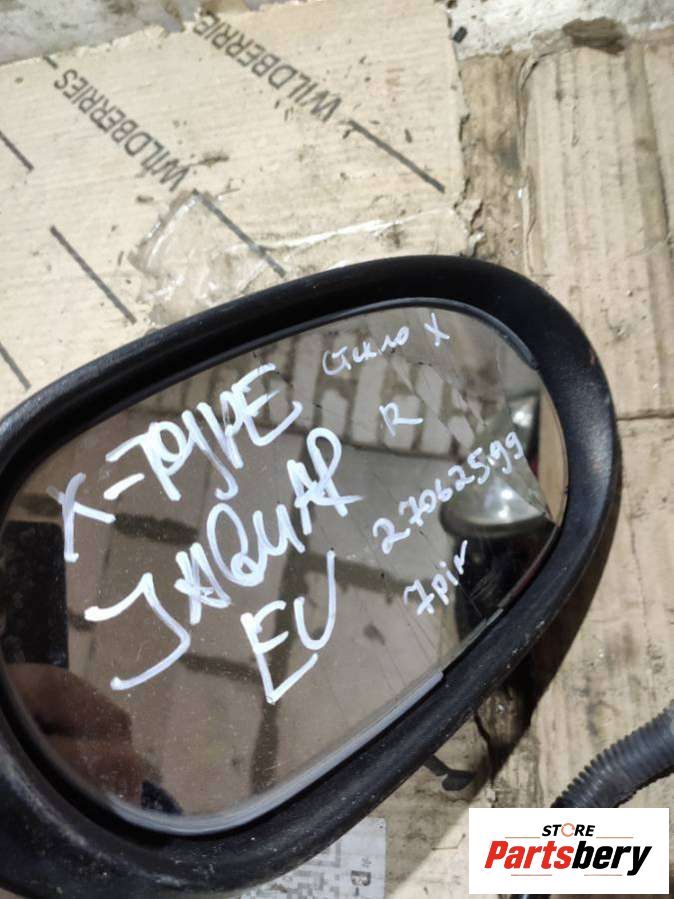 WILDBERRIES
WILDBERRIES
WILDBERRIES
стекло X
X-TYPE
R
JAGUAR
27062599
EU
7pin
STORE
Partsbery